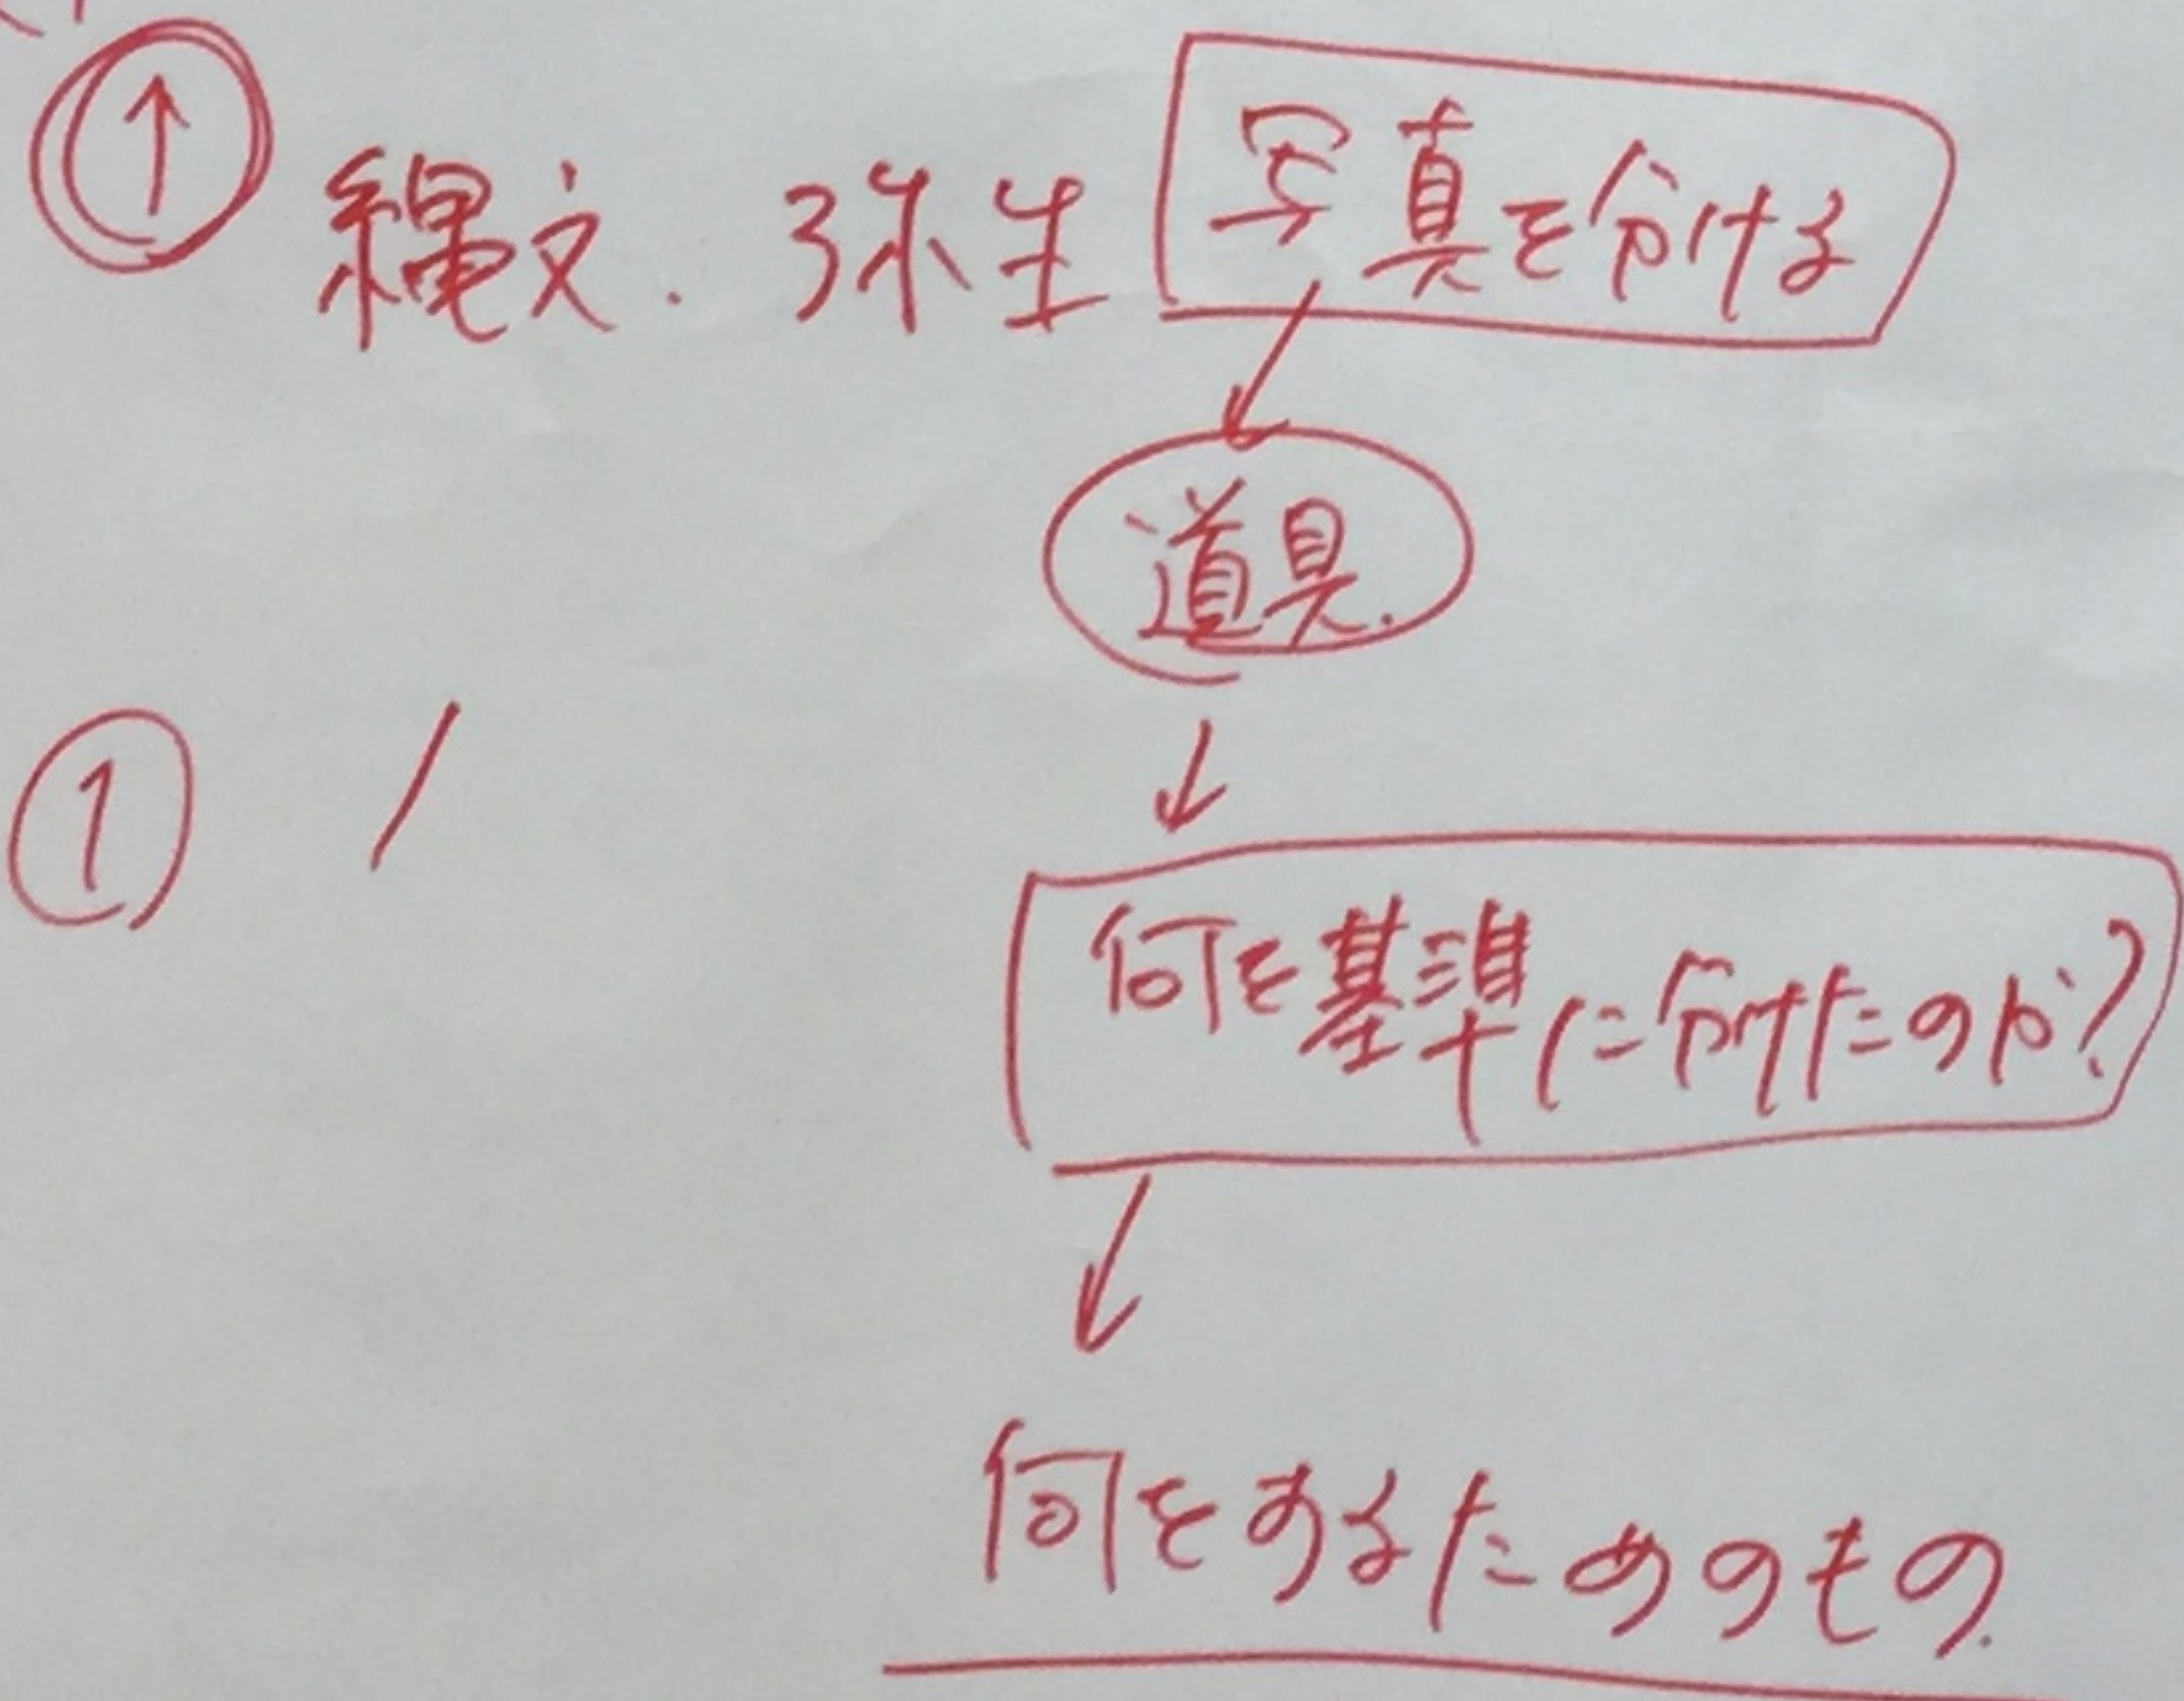 ↑ 縄文. 弥生 写真を分ける
道具.
①
何を基準に分けたのか?
何をするためのもの.